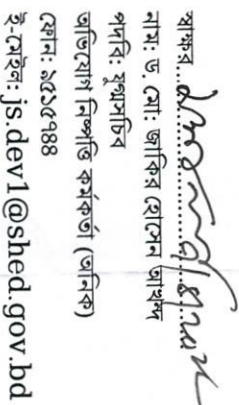 স্বাক্ষর.....................
নাম: ড. মো: জাকির হোসেন আখন্দ
পদবি: যুগ্মসচিব
অভিযোগ নিষ্পত্তি কর্মকর্তা (অনিক)
ফোন: ৯৫১৫৭৪৪
ই-মেইল: js.dev1@shed.gov.bd